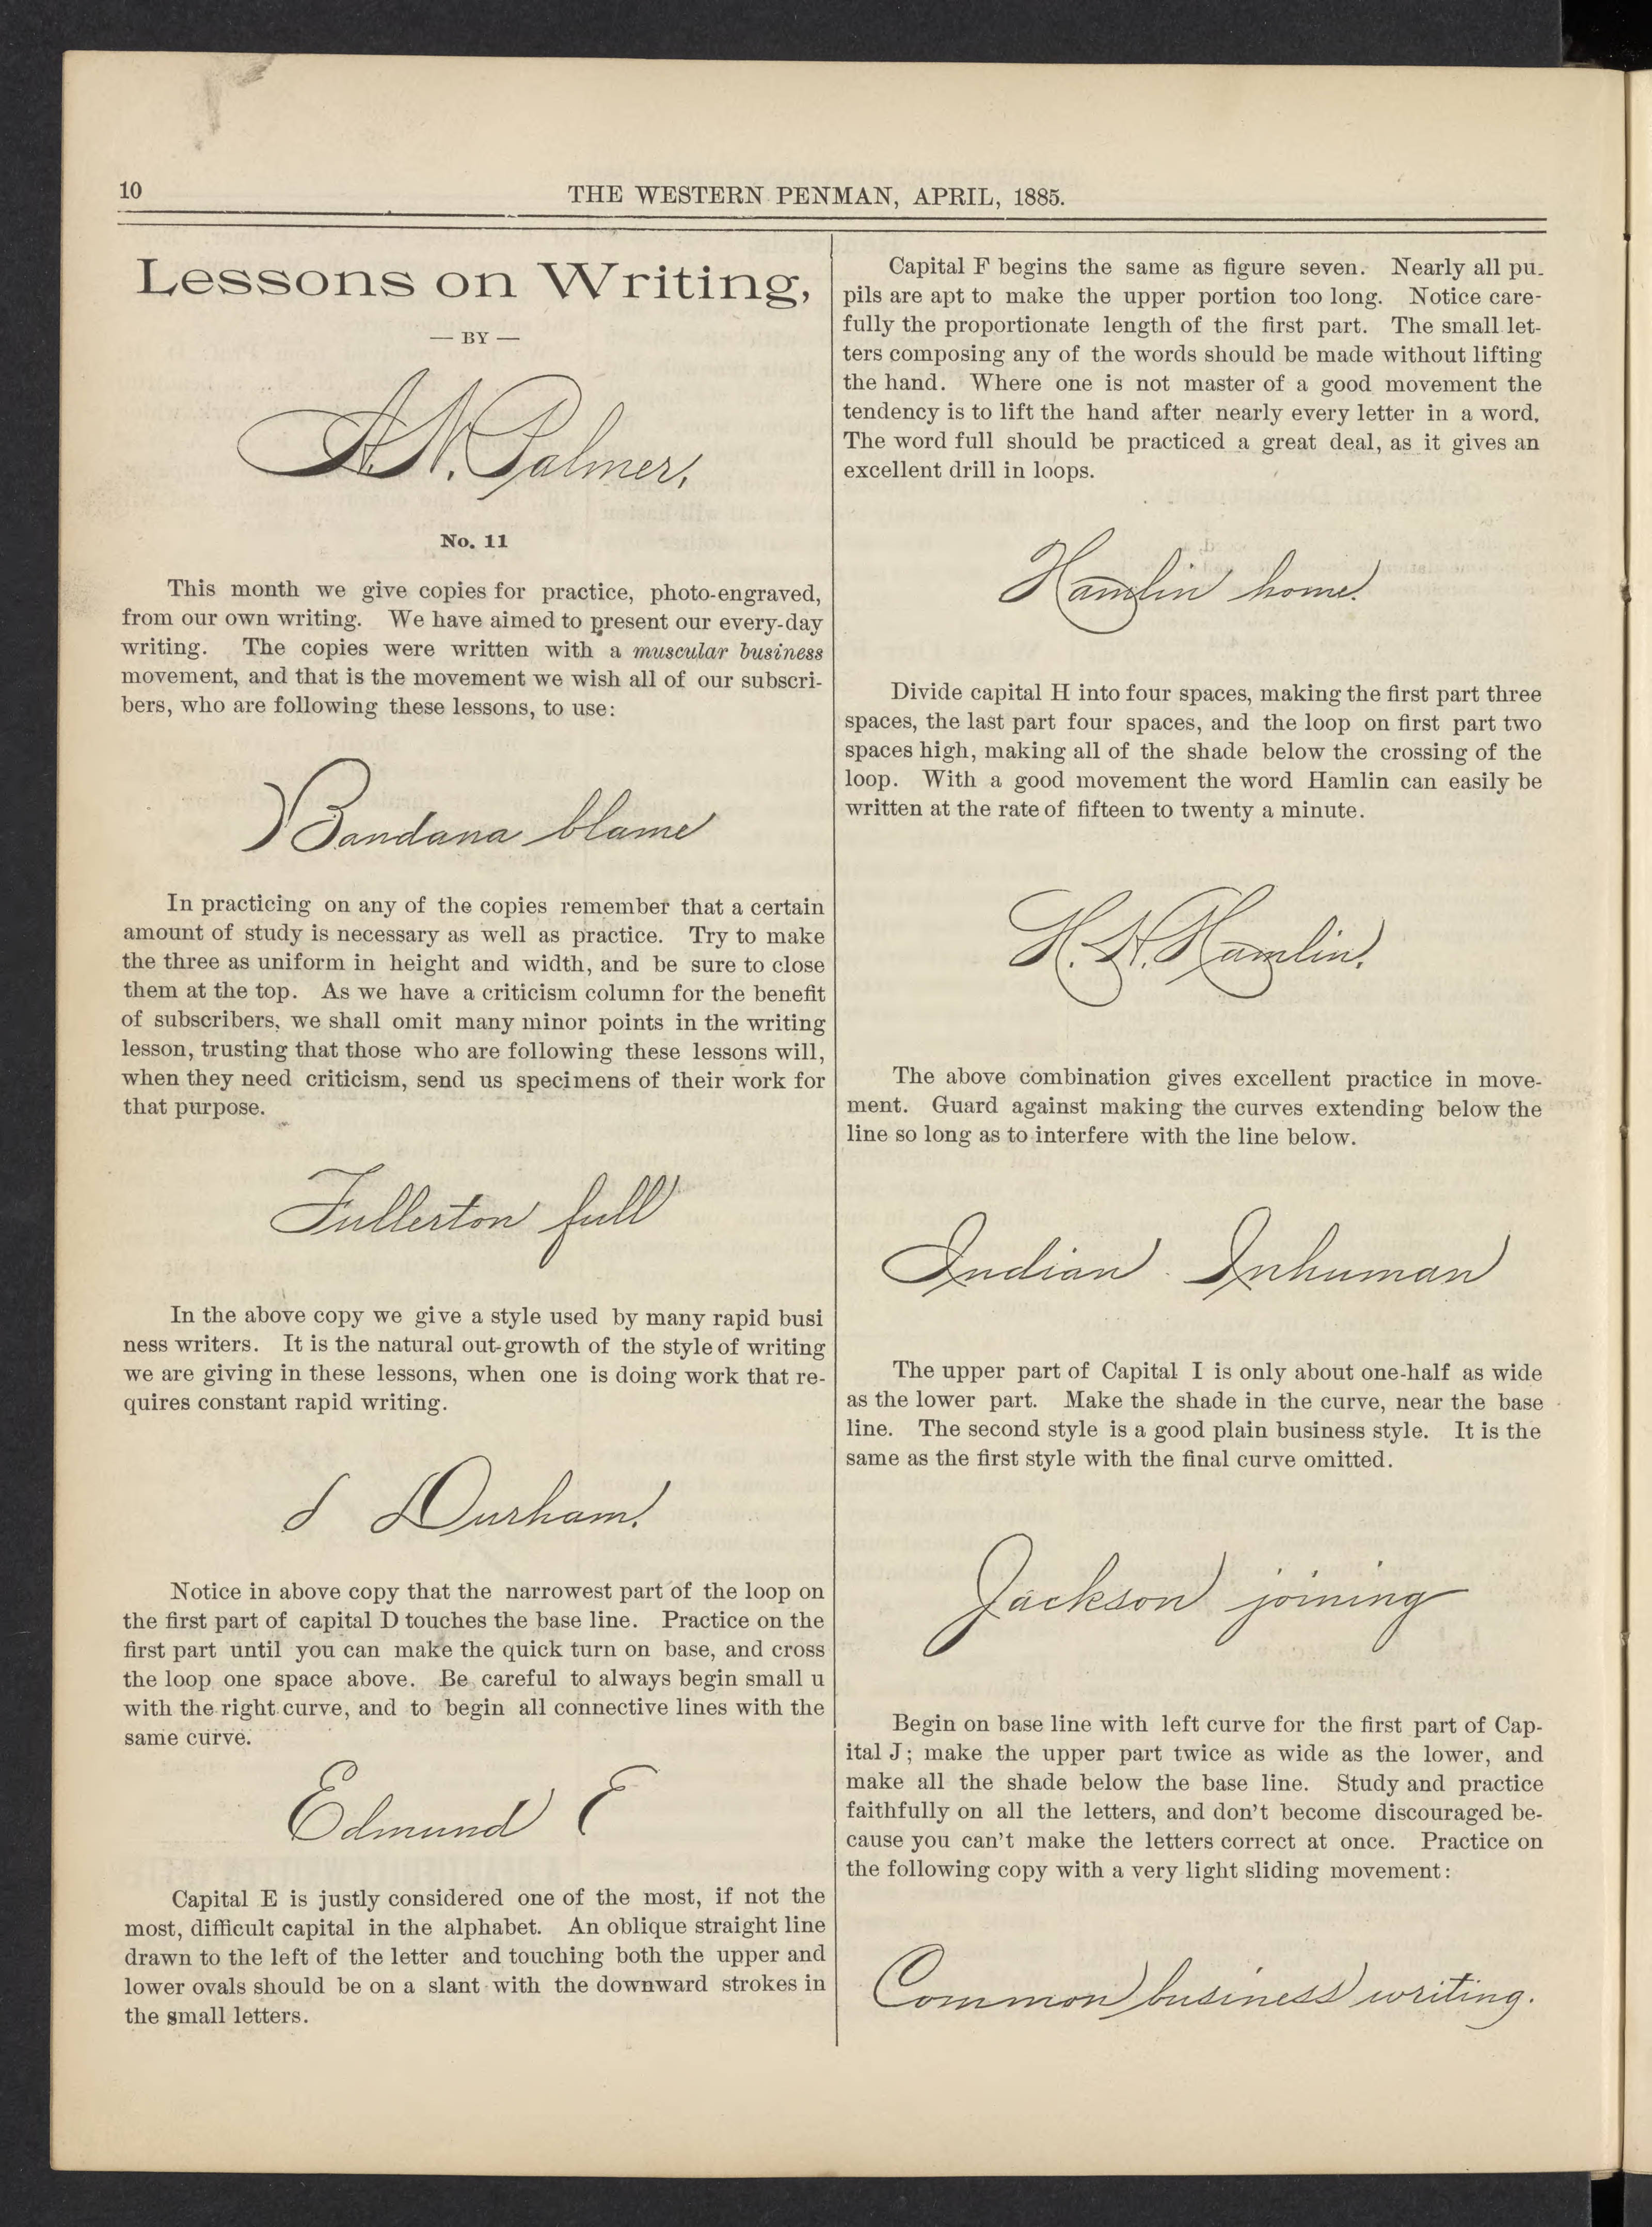 10
THE WESTERN PENMAN, APRIL, 1885.
Lessons on Writing,
— BY —
A. N. Palmer,
No. 11
This month we give copies for practice, photo-engraved,
from our own writing. We have aimed to present our every-day
writing. The copies were written with a muscular business
movement, and that is the movement we wish all of our subscri-
bers, who are following these lessons, to use:
Bandana blame
In practicing on any of the copies remember that a certain
amount of study is necessary as well as practice. Try to make
the three as uniform in height and width, and be sure to close
them at the top. As we have a criticism column for the benefit
of subscribers, we shall omit many minor points in the writing
lesson, trusting that those who are following these lessons will,
when they need criticism, send us specimens of their work for
that purpose.
Fullerton full
In the above copy we give a style used by many rapid busi
ness writers. It is the natural out-growth of the style of writing
we are giving in these lessons, when one is doing work that re-
quires constant rapid writing.
d Durham.
Notice in above copy that the narrowest part of the loop on
the first part of capital D touches the base line. Practice on the
first part until you can make the quick turn on base, and cross
the loop one space above. Be careful to always begin small u
with the right curve, and to begin all connective lines with the
same curve.
Edmund E
Capital E is justly considered one of the most, if not the
most, difficult capital in the alphabet. An oblique straight line
drawn to the left of the letter and touching both the upper and
lower ovals should be on a slant with the downward strokes in
the small letters.
Capital F begins the same as figure seven. Nearly all pu-
pils are apt to make the upper portion too long. Notice care-
fully the proportionate length of the first part. The small let-
ters composing any of the words should be made without lifting
the hand. Where one is not master of a good movement the
tendency is to lift the hand after nearly every letter in a word,
The word full should be practiced a great deal, as it gives an
excellent drill in loops.
Hamlin home.
Divide capital H into four spaces, making the first part three
spaces, the last part four spaces, and the loop on first part two
spaces high, making all of the shade below the crossing of the
loop. With a good movement the word Hamlin can easily be
written at the rate of fifteen to twenty a minute.
H. H. Hamlin.
The above combination gives excellent practice in move-
ment. Guard against making the curves extending below the
line so long as to interfere with the line below.
Indian Inhuman
The upper part of Capital I is only about one-half as wide
as the lower part. Make the shade in the curve, near the base
line. The second style is a good plain business style. It is the
same as the first style with the final curve omitted.
Jackson joining
Begin on base line with left curve for the first part of Cap-
ital J; make the upper part twice as wide as the lower, and
make all the shade below the base line. Study and practice
faithfully on all the letters, and don't become discouraged be-
cause you can't make the letters correct at once. Practice on
the following copy with a very light sliding movement:
Common business writing.